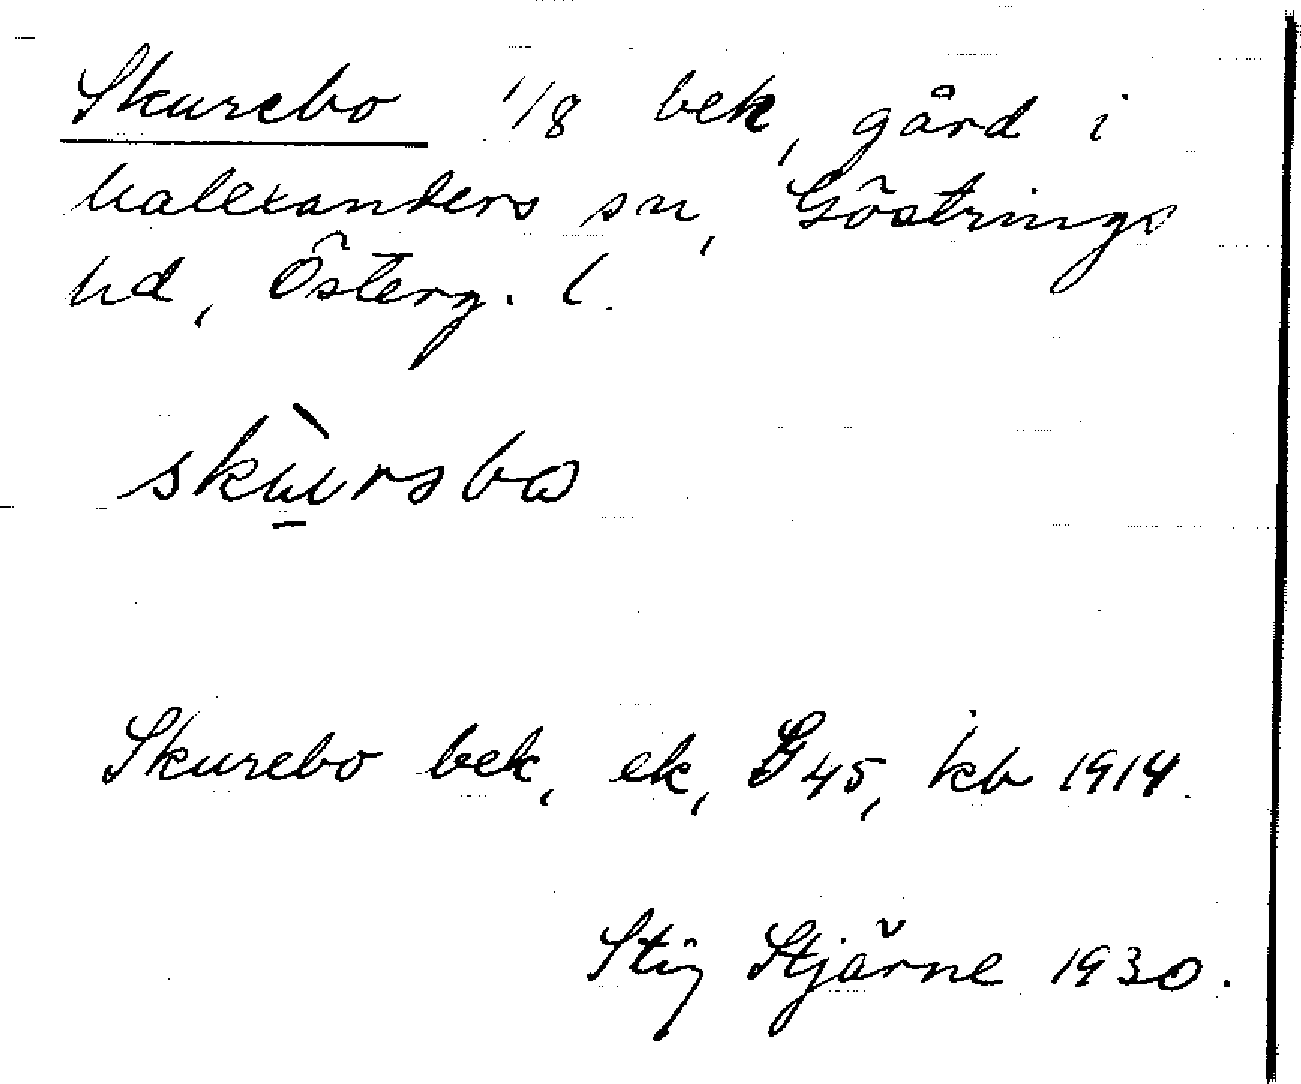 Skurebo 1/8 bek, gård i
Malexanders sn, Göstrings
hd, Österg. l.
Skurebo bek, ek, G 45, kb 1914.
Stig Stjärne 1930.